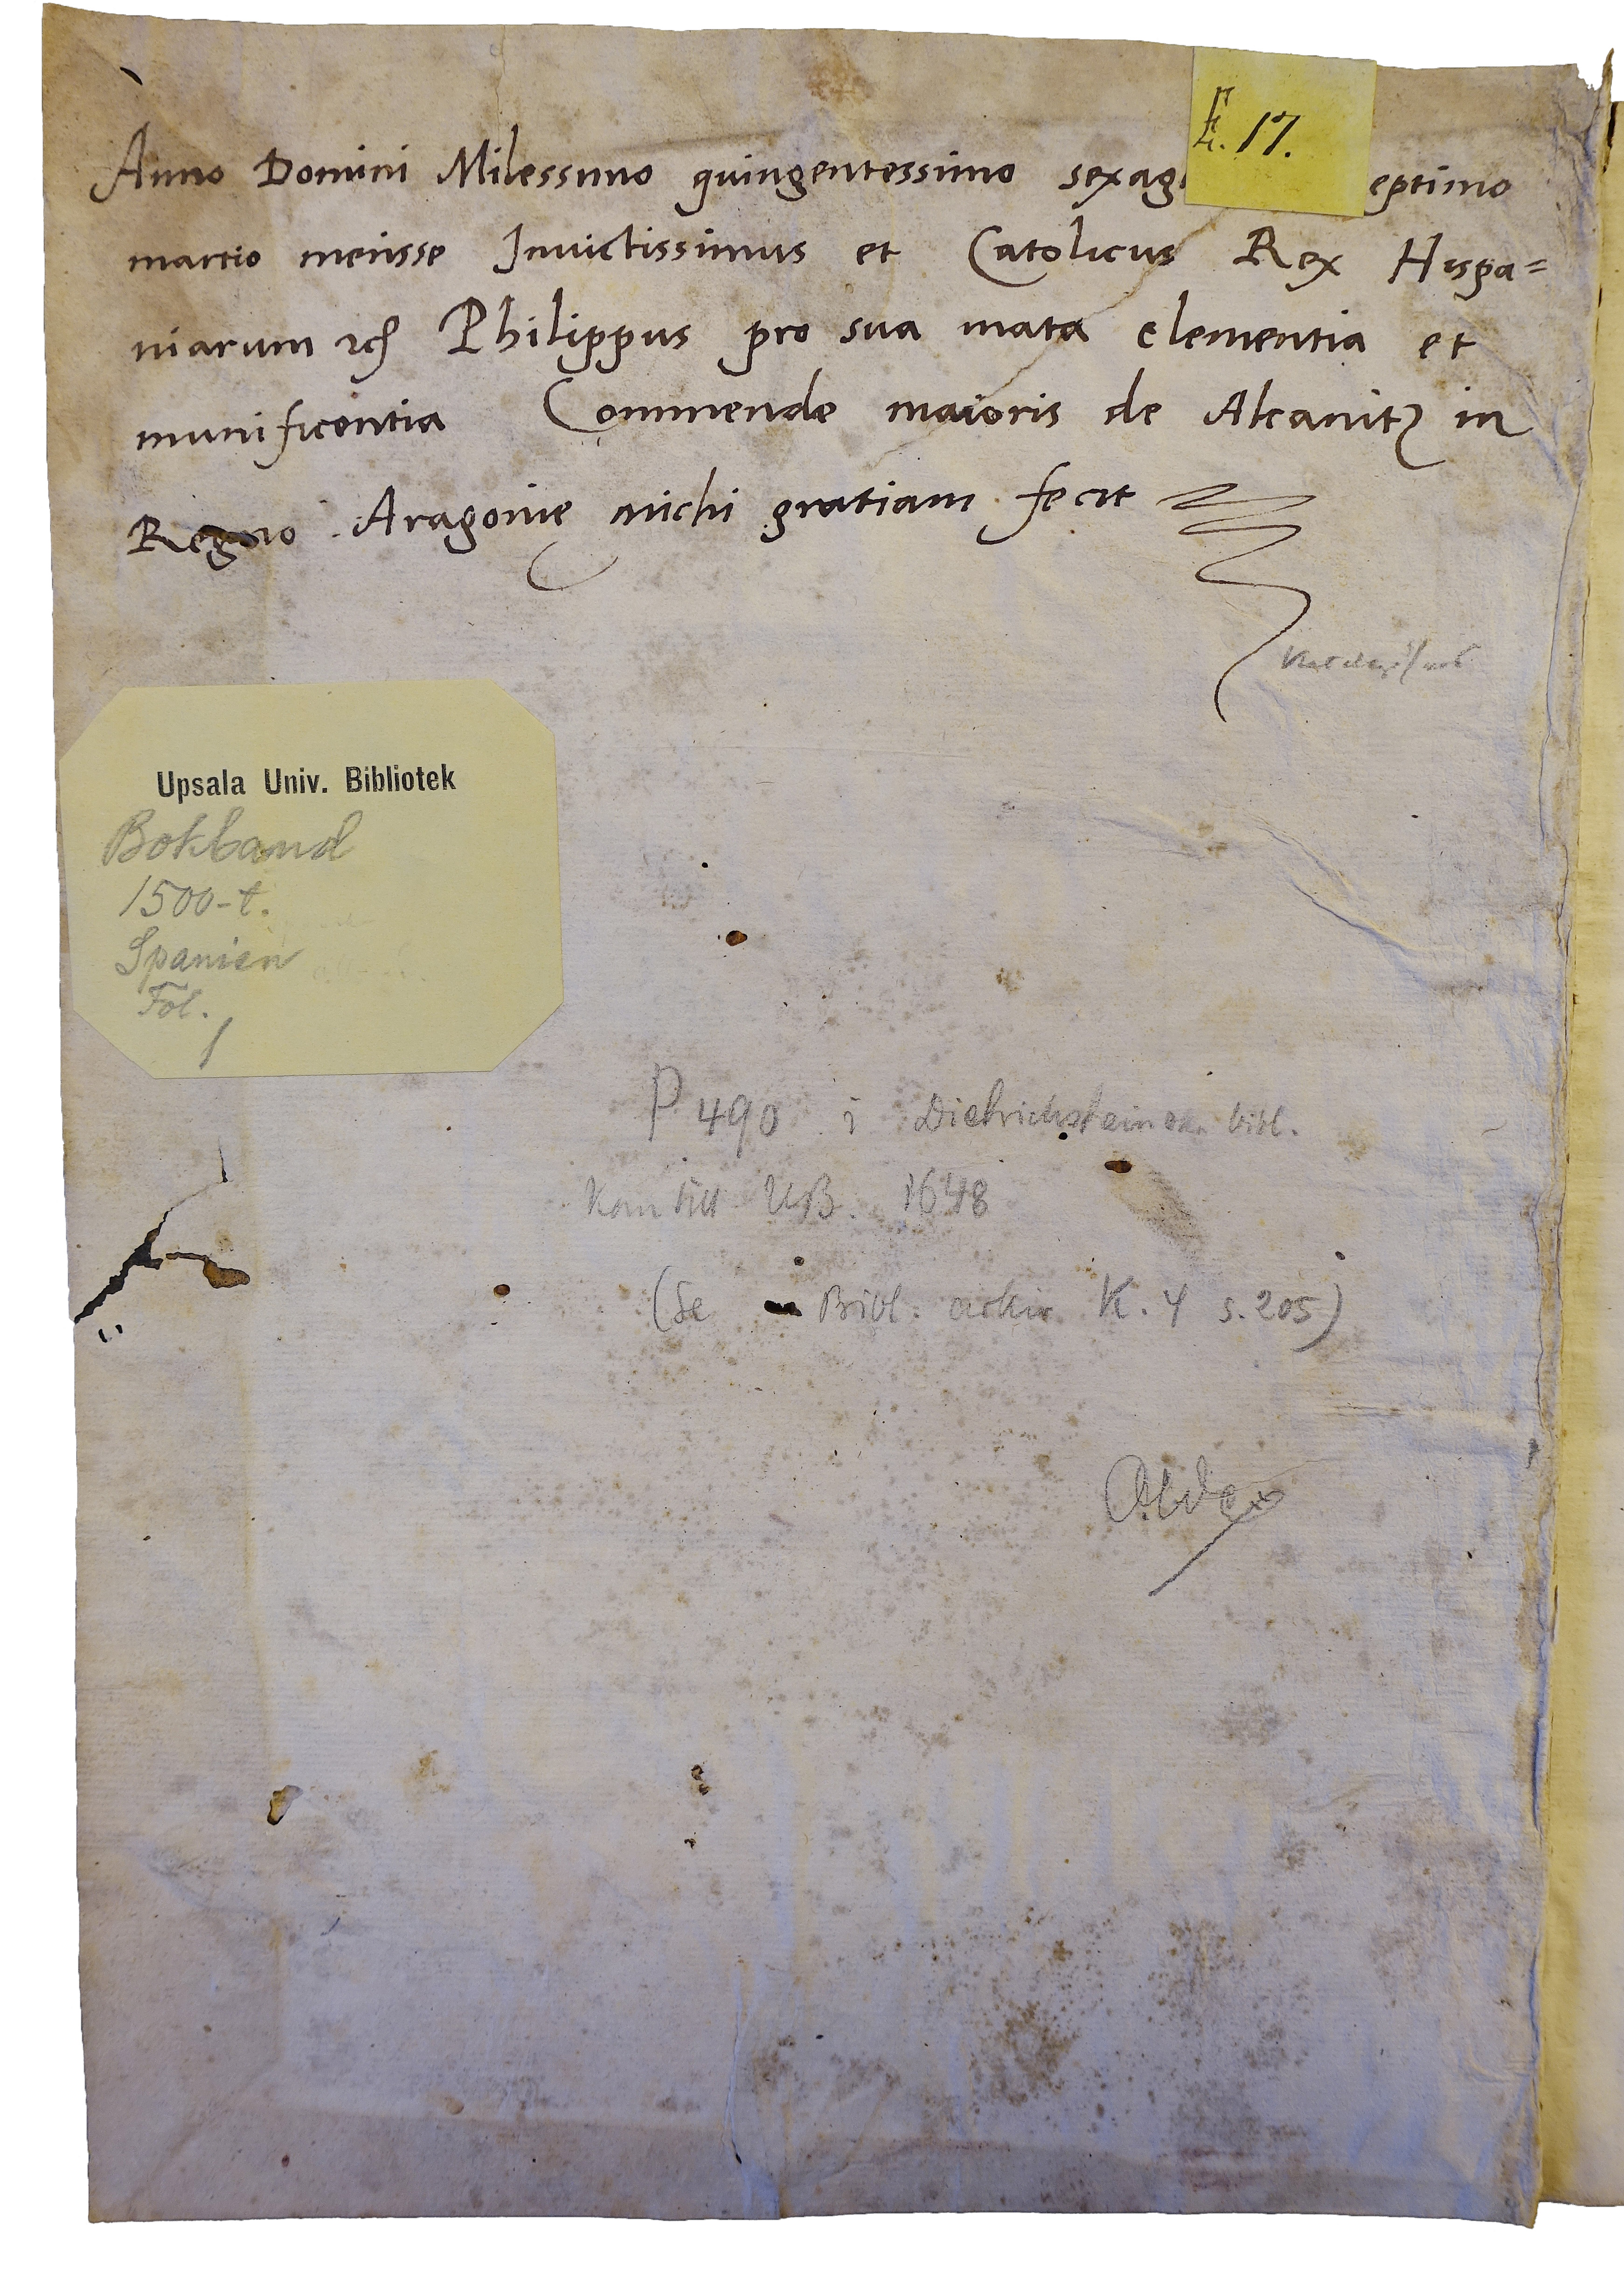 E. 17.
Anno Domini Milessimo quingentessimo sexag eptimo
martio mensse Invictissimus et Catolicus Rex Hispa=
niarum Philippus pro sua inata clementia et
munificentia Commende maioris de Alcanitz in
Regno Aragonie michi gratiam fecit
Upsala Univ. Bibliotek
Bokband
1500-t.
Spanien
Fol.
1
P 490 i Dietrichsteinska bibl.
Kom till UB. 1648
(Se Bibl. arkiv K. 4 s. 205)